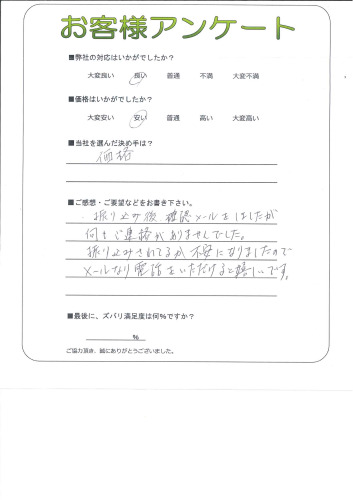 お客様アンケート
■弊社の対応はいかがでしたか?
大変良い 良い 普通 不満 大変不満
■価格はいかがでしたか?
大変安い 安い 普通 高い 大変高い
■当社を選んだ決め手は?
価格
■ご感想・ご要望などをお書き下さい。
振り込み後 確認メールをしましたが
何もご連絡がありませんでした。
振り込みされてるか不安になりましたので
メールなり電話をいただけると嬉しいです。
■最後に、ズバリ満足度は何%ですか?
%
ご協力頂き、誠にありがとうございました。